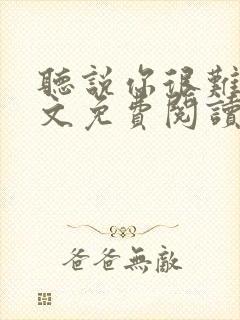 聽說你很難
文免費閱讀
爸爸無敵